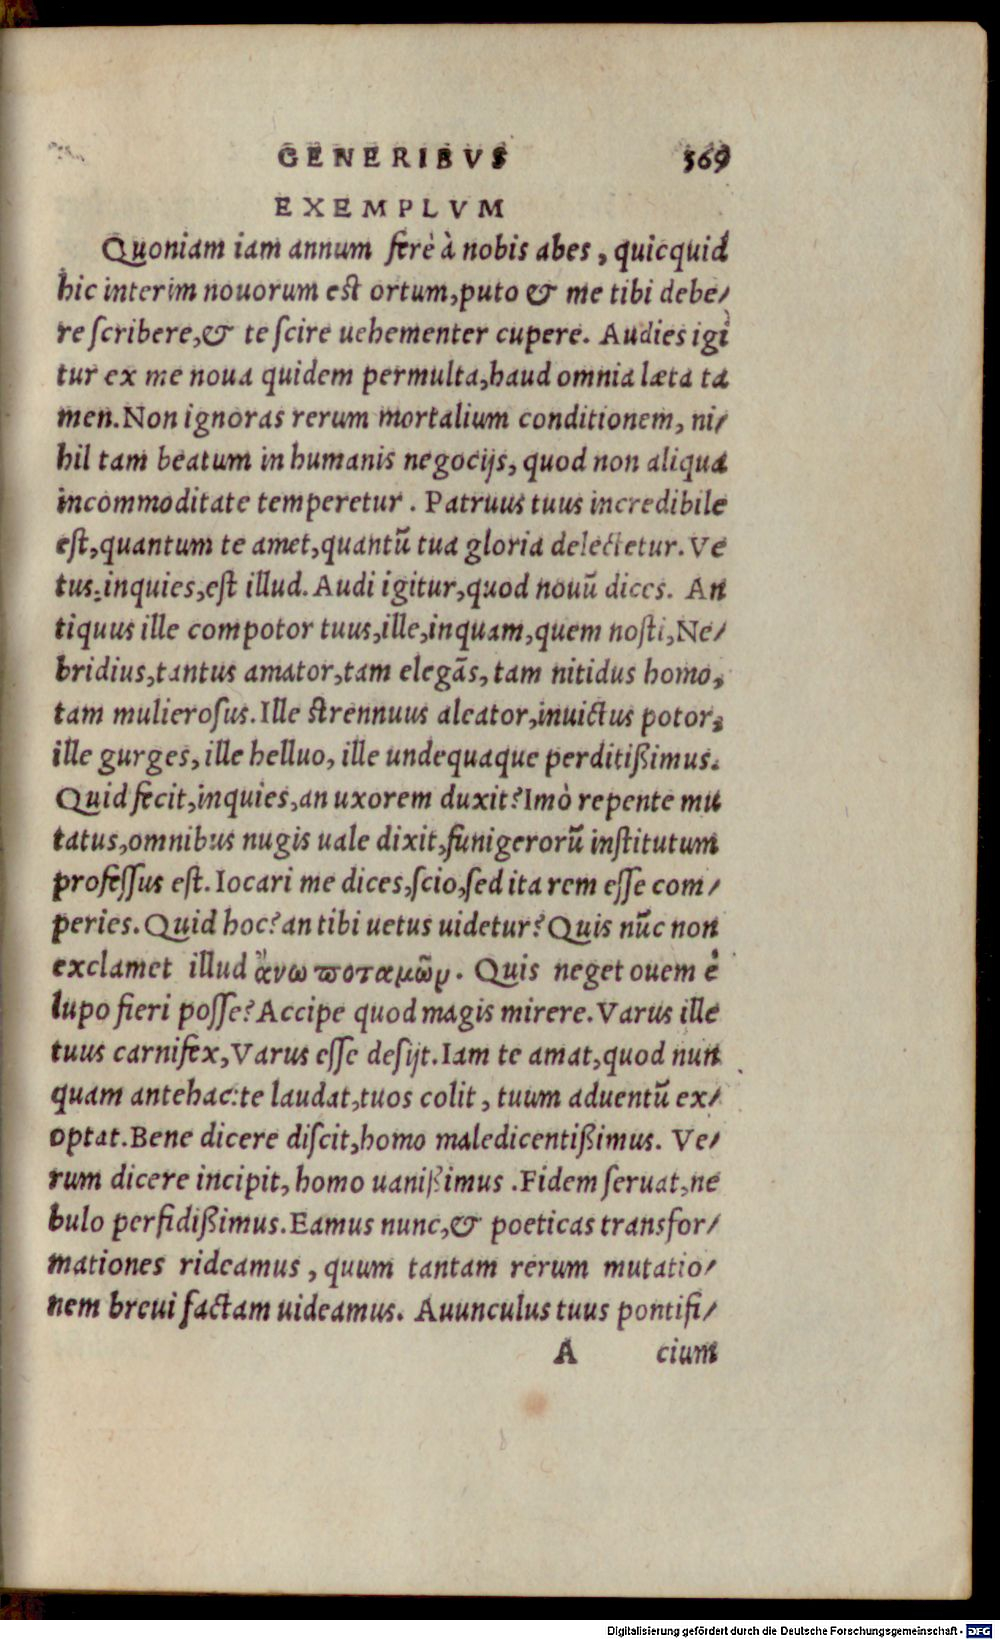 GENERIBVS 369
EXEMPLVM
Quoniam iam annum ferè à nobis abes, quicquid
hic interim nouorum est ortum, puto & me tibi debe/
re scribere, & te scire uehementer cupere. Audies igi
tur ex me noua quidem permulta, haud omnia læta ta
men. Non ignoras rerum mortalium conditionem, ni/
hil tam beatum in humanis negocijs, quod non aliqua
incommoditate temperetur. Patruus tuus incredibile
est, quantum te amet, quantũ tua gloria delectetur. Ve
tus, inquies, est illud. Audi igitur, quod nouũ dices. An
tiquus ille compotor tuus, ille, inquam, quem nosti, Ne/
bridius, tantus amator, tam elegãs, tam nitidus homo,
tam mulierosus. Ille strennuus aleator, inuictus potor,
ille gurges, ille helluo, ille undequaque perditißimus.
Quid fecit, inquies, an uxorem duxit? Imò repente mu
tatus, omnibus nugis uale dixit, funigerorũ institutum
professus est. Iocari me dices, scio, sed ita rem esse com/
peries. Quid hoc? an tibi uetus uidetur? Quis nũc non
exclamet illud ἄνω ποταμῶν. Quis neget ouem è
lupo fieri posse? Accipe quod magis mirere. Varus ille
tuus carnifex, Varus esse desijt. Iam te amat, quod nun
quam antehac: te laudat, tuos colit, tuum aduentũ ex/
optat. Bene dicere discit, homo maledicentißimus. Ve/
rum dicere incipit, homo uanißimus. Fidem seruat, ne
bulo perfidißimus. Eamus nunc, & poeticas transfor/
mationes rideamus, quum tantam rerum mutatio/
nem breui factam uideamus. Auunculus tuus pontifi/
A cium
Digitalisierung gefördert durch die Deutsche Forschungsgemeinschaft - DFG